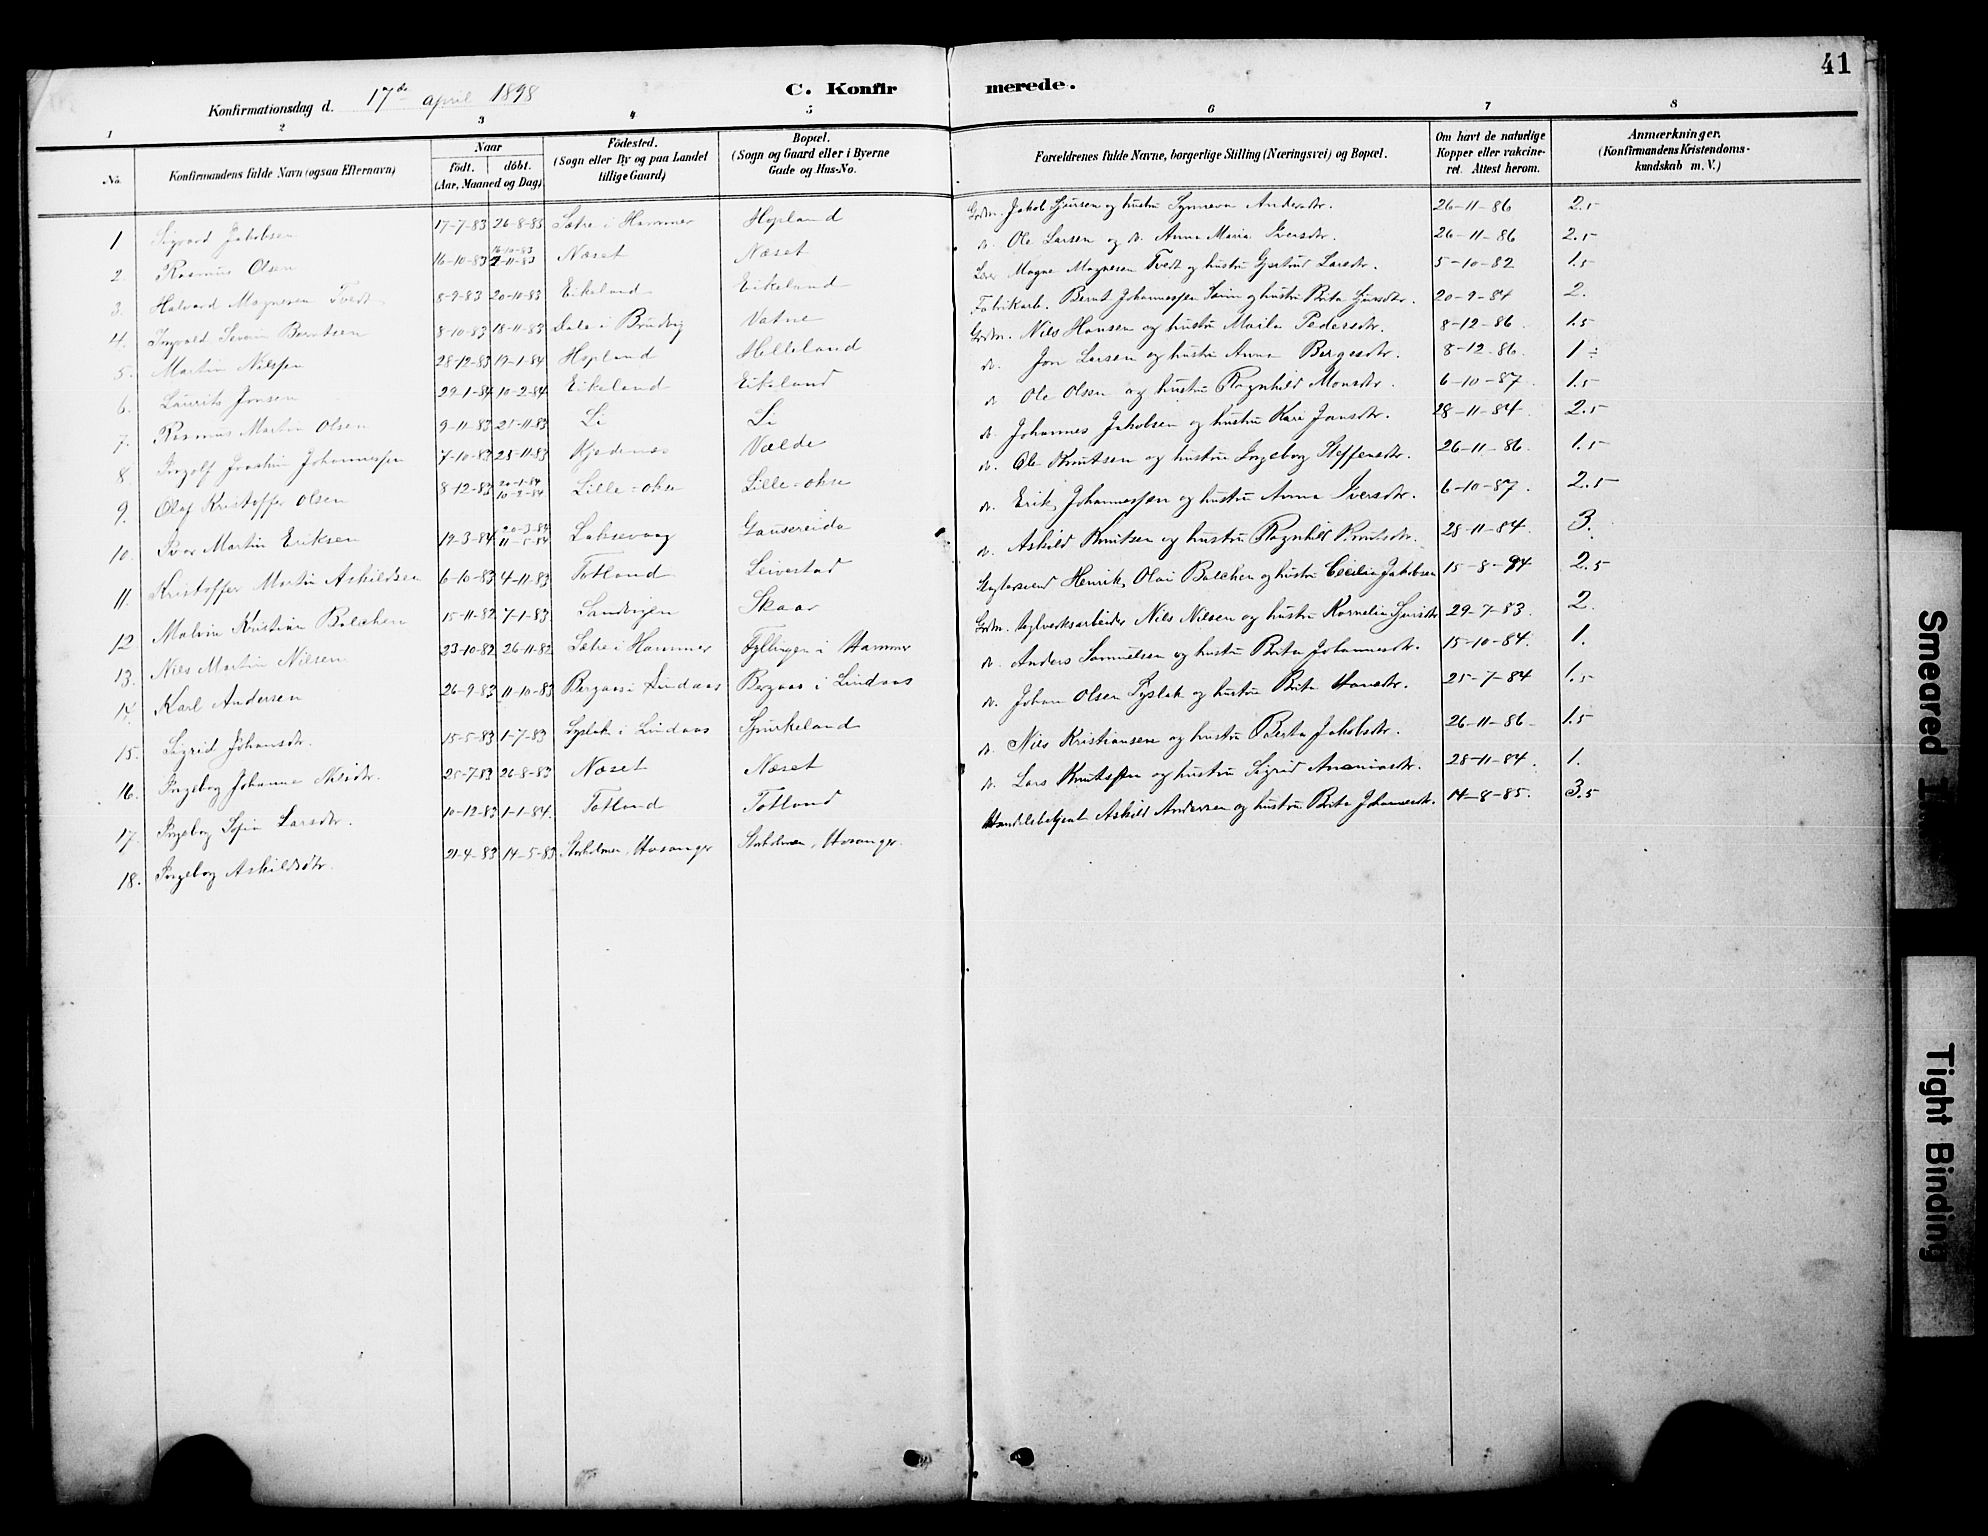 41
Konfirmationsdag d. 17de april 1898
C. Konfirmerede.
1 2 3 4 5 6 7 8
No.
Konfirmandens fulde Navn (ogsaa Efternavn)
Naar
født. døbt.
(Aar, Maaned og Dag)
Fødested.
(Sogn eller By og paa Landet
tillige Gaard)
Bopæl.
(Sogn og Gaard eller i Byerne
Gade og Hus-No.
Forældrenes fulde Navne, borgerlige Stilling (Næringsvei) og Bopæl.
Om havt de naturlige
Kopper eller vakcine-
ret. Attest herom.
Anmærkninger.
(Konfirmandens Kristendoms-
kundskab m. V.)
1 Sigvard Jakobsen 17-7-83 26-8-83 Sætre i Hammer Hopland Grdm. Jakob Sjursen og hustru Synneva Andersdtr. 26-11-86 2.5
2 Rasmus Olsen 16-10-83 16-10-83 2-11-83 Næset Næset do. Ole Larsen og do. Anna Maria Iversdtr. 26-11-86 2.5
3. Halvard Magnesen Tvedt 8-9-83 20-10-83 Eikeland Eikeland Magne Magnesen Tvedt og hustru Gjertrud Larsdtr. 5-10-82 1.5
4. Ingvald Severin Berntsen 8-10-83 18-11-83 Dale i Bruvig Vatne Fabrikarb. Bernt Johannessen og hustru Brita Sjursdtr. 20-9-84 2.
5. Martin Nilssen 28-12-83 19-1-84 Hopland Helleland Grdm. Nils Hansen og hustru Marta Pedersdtr. 8-12-86 1.5
6. Laurits Jonsen 29-1-84 10-2-84 Eikeland Eikeland do. Jon Larsen og hustru Anna Bergesdtr. 8-12-86. 1
7. Rasmus Martin Olsen 9-11-83 25-11-83 Li Li do. Ole Olsen og hustru Ragnhild Monsdtr. 6-10-87. 1.5
8. Ingolf Joachim Johannessen 7-10-83 25-11-83 Kjedenes Vælde do. Johannes Jakobsen og hustru Kari Jansdtr. 28-11-84. 2.5
9. Olaf Kristoffer Olsen 8-12-83 20-1-84 10-2-84 Lille-okse Lille-okse do. Ole Knutsen og hustru Ingeborg Steffensdtr. 26-11-86. 1.5
10. Ivar Martin Eriksen 19-3-84 20-3-84 11-5-84 Laksevaag Gausereida do. Erik Johannessen og hustru Anna Iversdtr. 6-10-87. 2.5
11. Kristoffer Martin Askildsen 6-10-83 4-11-83 Totland Leivestad do. Askild Knutsen og hustru Ragnhild Knutsdtr. 28-11-84. 3.
12 Malvin Kristian Balchen 15-11-82 7-1-83 Sandvigen Skaar Henrik Olai Balchen og hustru Cecilia Jakobsen 15-8-94 2.5
13. Nils Martin Nilsen 23-10-82 26-11-82 Sætre i Hammer Fyllingen i Hammer Grdm. Teglverksarbeider Nils Nilsen og hustru Kornelia Sjursdtr 29-7-83. 2.
14. Karl Andersen 26-9-83 11-10-83 Bergaas i Lindaas Bergaas i Lindaas do. Anders Samuelsen og hustru Brita Johannesdtr. 15-10-84. 1.
15. Sigrid Johansdtr. 15-5-83 1-7-83 Syslak i Lindaas Spurkeland do. Johan Olsen Syslak og hustru Brita Hansdtr. 25-7-84 1.5
16. Ingeborg Johanne Nilsdtr. 25-7-83 26-8-83 Næset Næset do. Nils Kristiansen og hustru Berta Jakobsdtr. 26-11-86- 1.5
17. Ingeborg Sofia Larsdtr. 10-12-83 1-1-84. Totland Totland do. Lars Knutssen og hustru Sigrid Ananiasdtr. 28-11-84. 1.
18. Ingeborg Askildsdtr. 21-4-83 14-5-83 Storholmen, Hosanger Storholmen, Hosanger. Handelsbetjent Askild Andersen og hustru Brita Johannesdtr. 14-8-85. 3.5
Smeared
Tight Binding